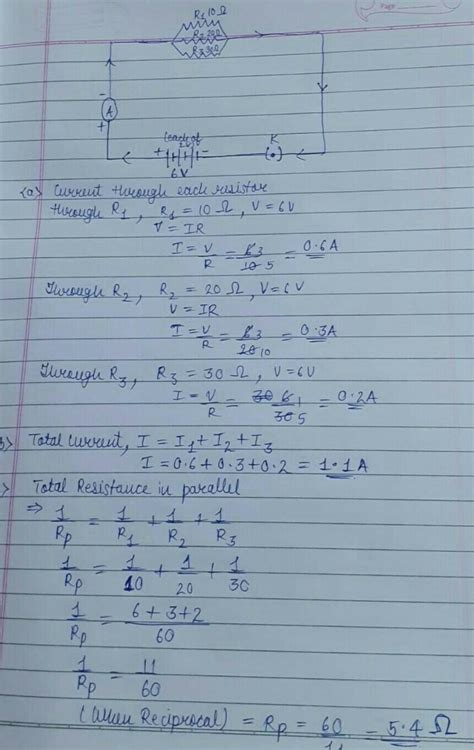 Page
R1 10Ω
R2 20Ω
R3 30Ω
-
A
+
(each of
2V)
K
+ -
(•)
6V
(a) Current through each resistor
through R1, R1 = 10 Ω, V = 6V
V = IR
I = V/R = 6 3/10 5 = 0.6A
Through R2, R2 = 20 Ω, V = 6V
V = IR
I = V/R = 6 3/20 10 = 0.3A
Through R3, R3 = 30 Ω, V = 6V
I = V/R = 30 6 1/30 5 = 0.2A
b) Total Current, I = I1 + I2 + I3
I = 0.6 + 0.3 + 0.2 = 1.1A
> Total Resistance in parallel
⇒ 1/Rp = 1/R1 + 1/R2 + 1/R3
1/Rp = 1/10 + 1/20 + 1/30
1/Rp = 6 + 3 + 2/60
1/Rp = 11/60
(When Reciprocal) = Rp = 60/11 = 5.4 Ω